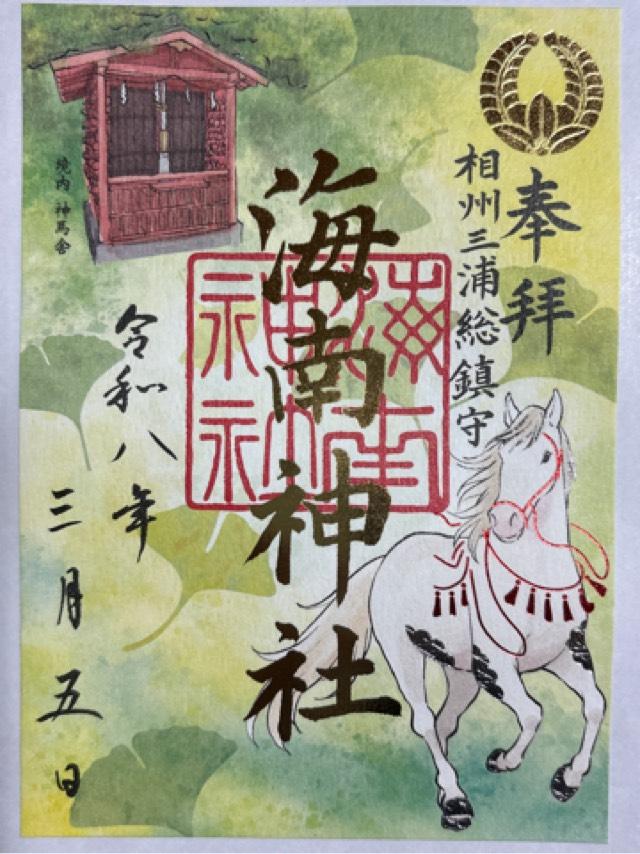 奉拝
相州三浦総鎮守
海南神社
境内 神馬舎
令和八年
三月五日